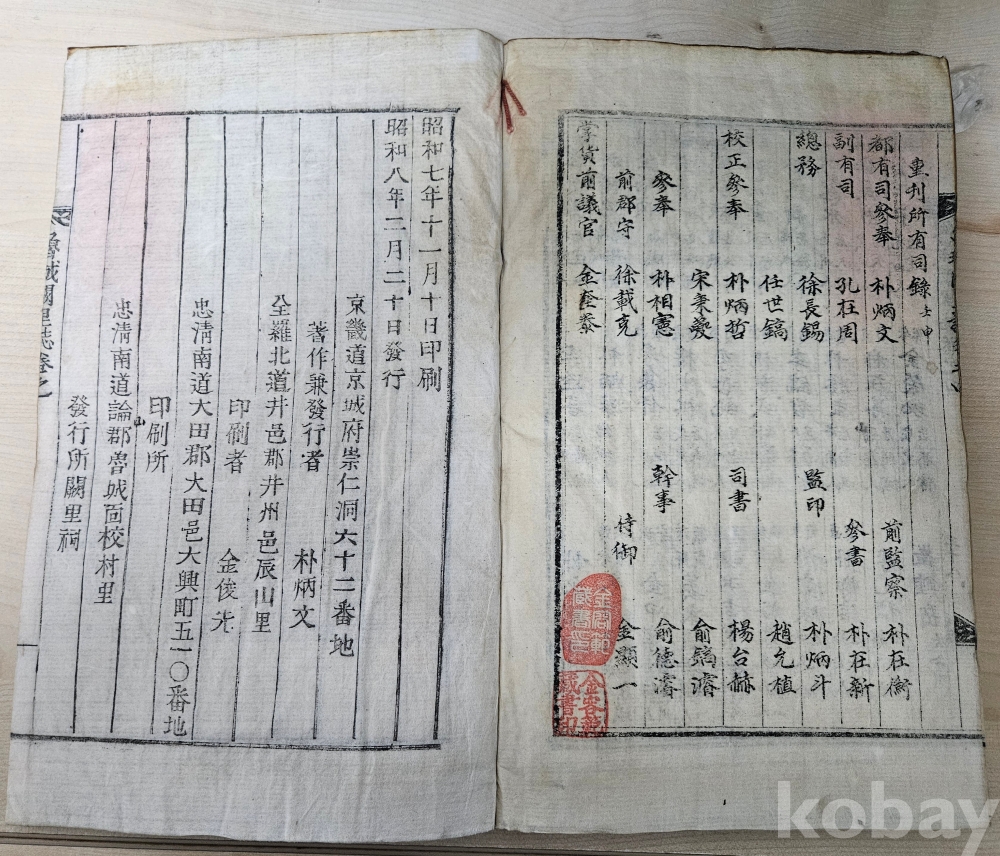 重刊所有司錄 壬申
都有司參奉 朴炳文 前監察 朴在衡
副有司 孔在周 參書 朴在新
總務 徐長錫 監印 朴炳斗
任世鎬 趙允植
校正參奉 朴炳哲 司書 楊台赫
宋秉夔 俞鎬濬
參奉 朴相憲 幹事 俞德濬
前郡守 徐載克 侍御 金顯一
掌貨前議官 金奎
昭和七年十一月十日印刷
昭和八年二月二十日發行
京畿道京城府崇仁洞六十二番地
著作兼發行者 朴炳文
全羅北道井邑郡井州邑辰山里
印刷者 金俊
忠淸南道大田郡大田邑大興町五一〇番地
印刷所
忠淸南道論山郡魯城面校村里
發行所闕里祠
魯城闕里誌卷之
藏書印
藏書印
kobay